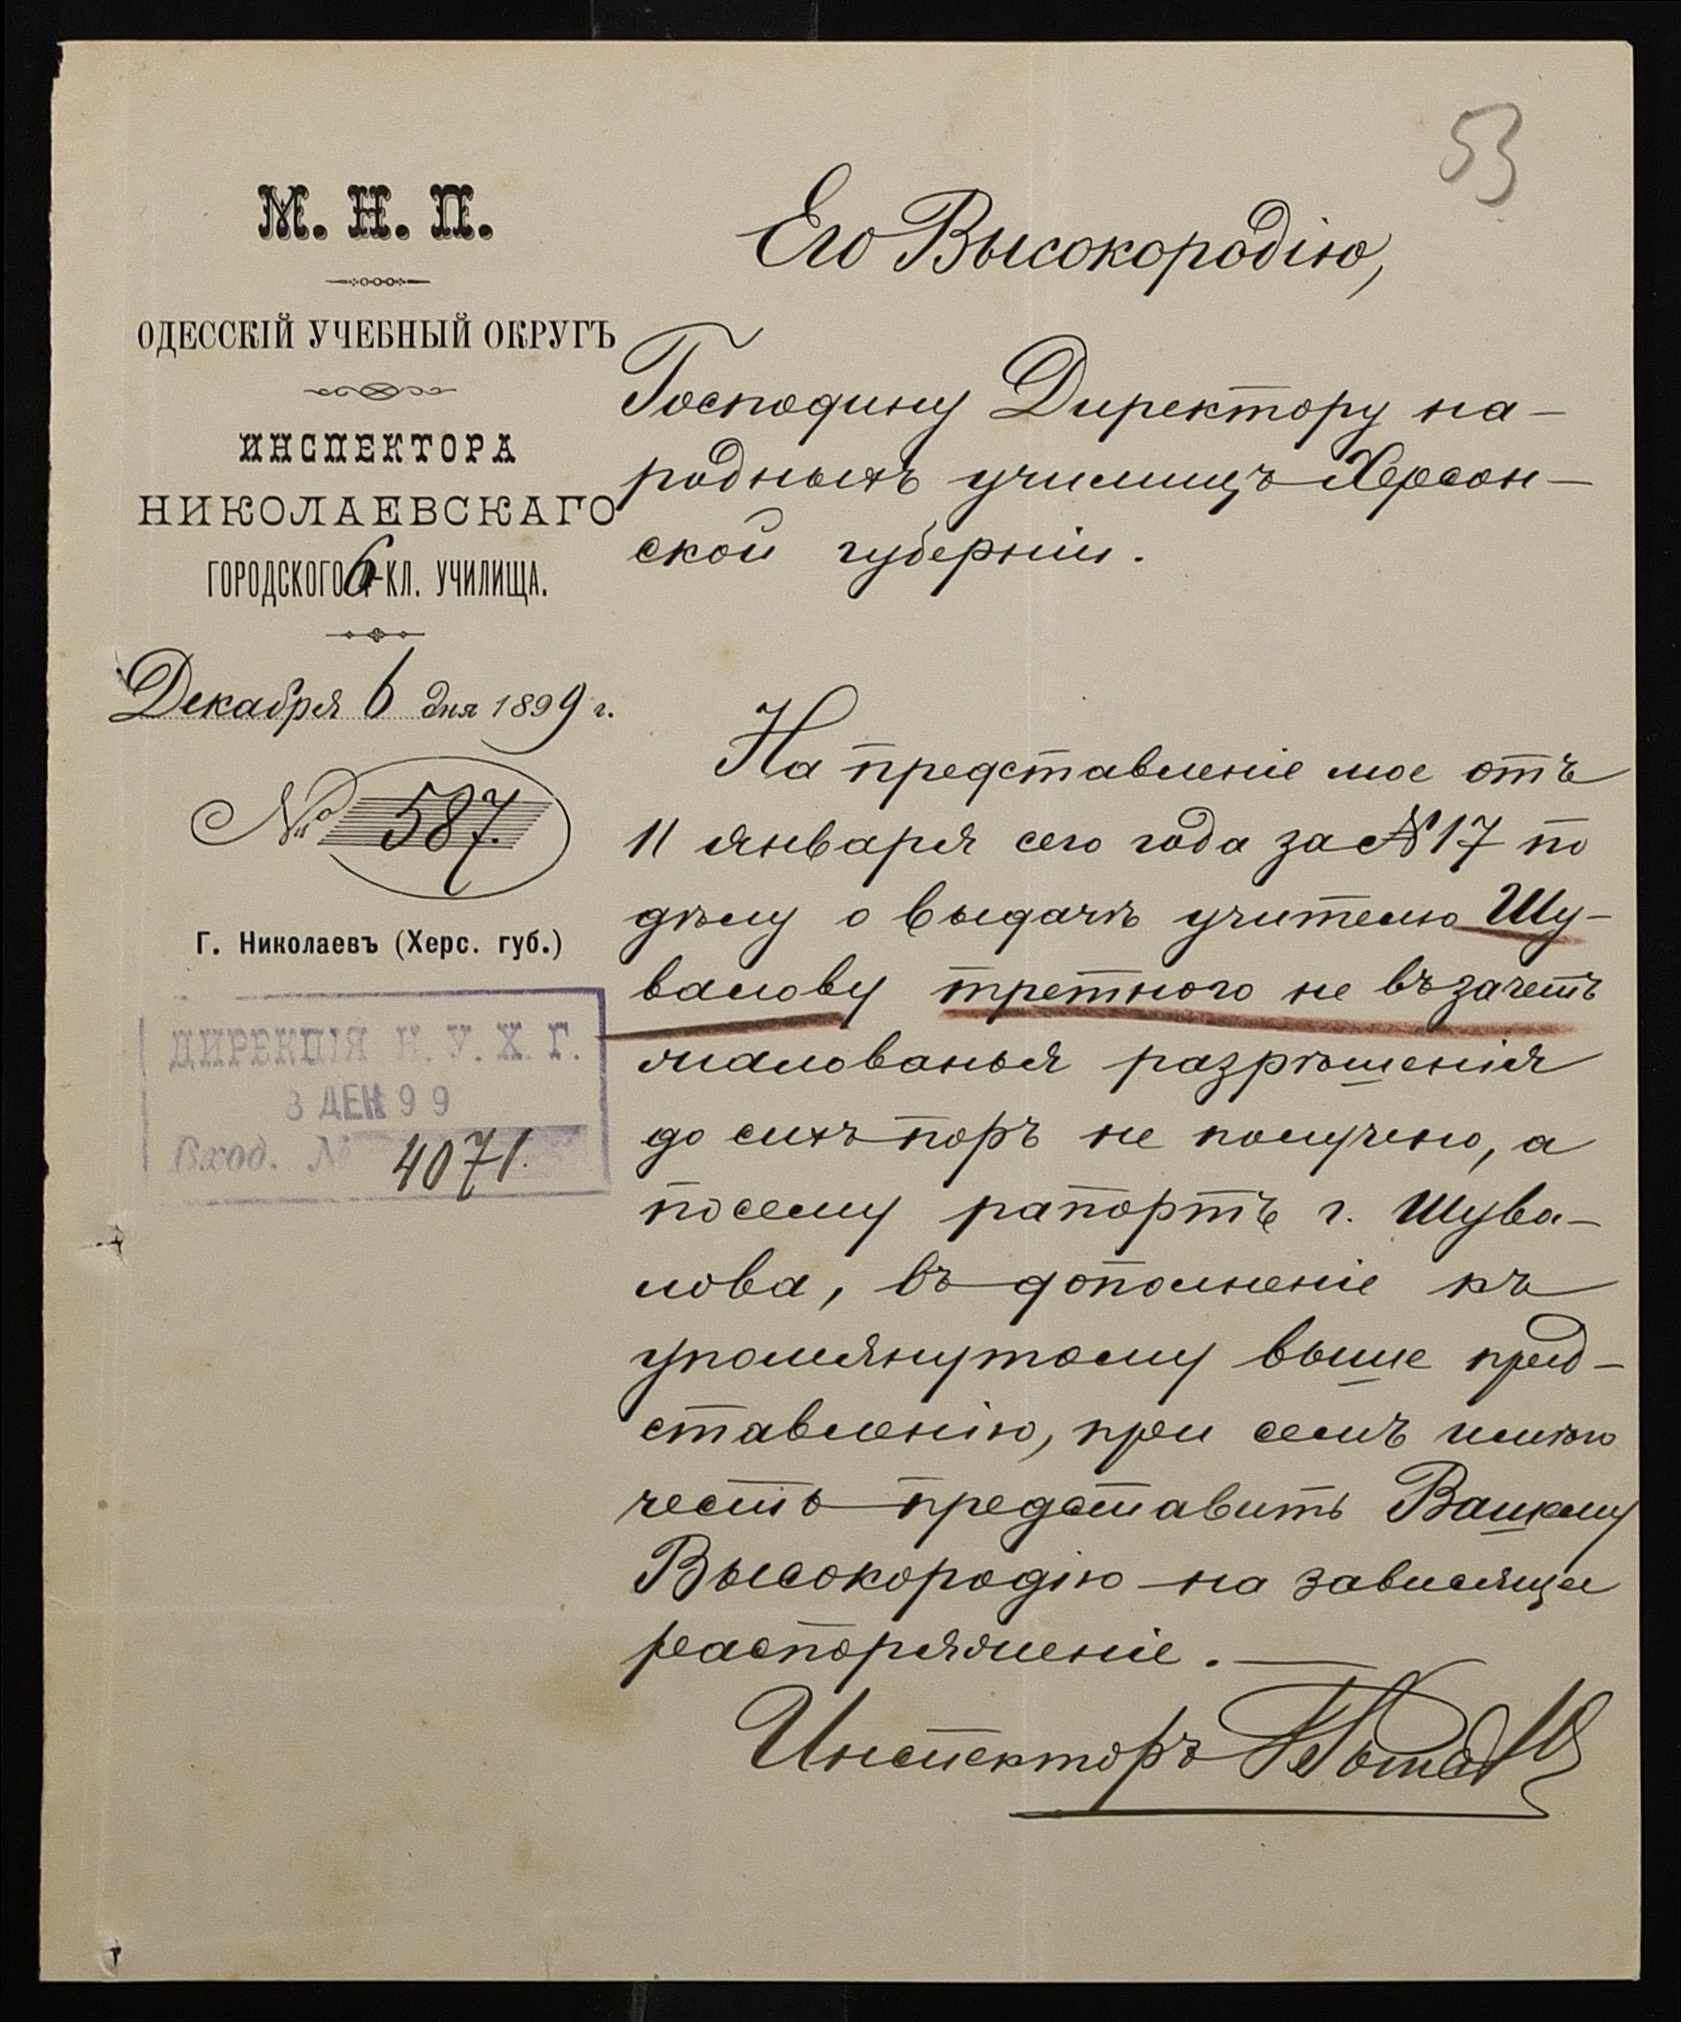 53
М. Н. П.
ОДЕССКІЙ УЧЕБНЫЙ ОКРУГЪ
ИНСПЕКТОРА
НИКОЛАЕВСКАГО
ГОРОДСКОГО 6-КЛ. УЧИЛИЩА.
Декабря 6 дня 1899 г.
№ 587.
Г. Николаевъ (Херс. губ.)
ДИРЕКЦІЯ Н. У. Х. Г.
8 ДЕК 99
Вход. № 4071.
Его Высокородію,
Господину Директору на-
родныхъ училищъ Херсон-
ской губерніи.
На представленіе мое отъ
11 января сего года за № 17 по
дѣлу о выдачѣ учителю Шу-
валову третного не въ зачетъ
жалованья разрѣшенія
до сихъ поръ не получено, а
посему рапортъ г. Шува-
лова, въ дополненіе къ
упомянутому выше пред-
ставленію, при семъ имѣю
честь представить Вашему
Высокородію на зависящее
распоряженіе.
Инспекторъ